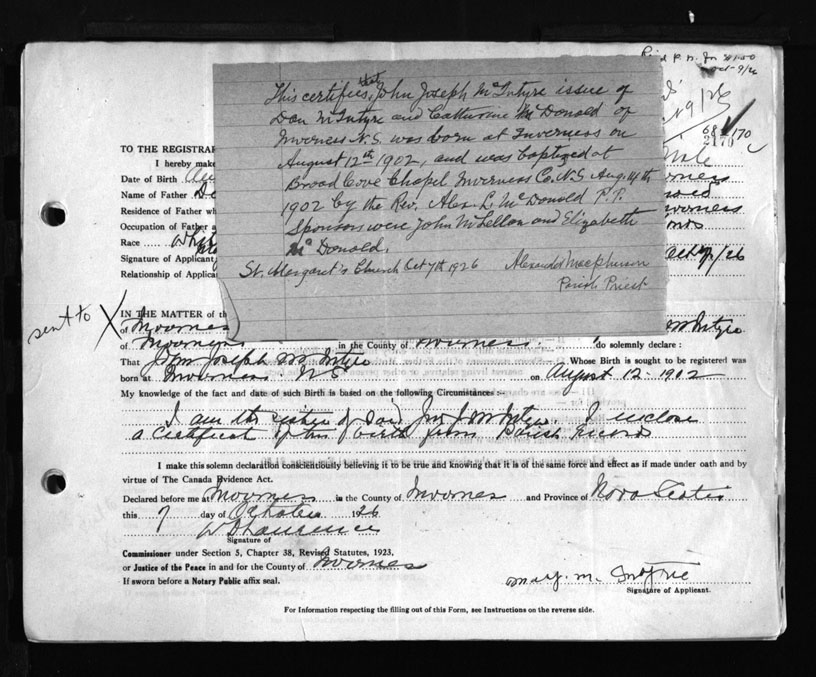 This certifies that John Joseph McIntyre issue of
Dan McIntyre and Catherine McDonald of
Inverness N.S. was born at Inverness on
August 12th 1902, and was baptized at
Broad Cove Chapel Inverness Co. N.S. Aug. 14th
1902 by the Rev. Alex. L. McDonald P.P.
Sponsors were John McLellan and Elizabeth
McDonald.
St. Margaret's Church Oct 7th 1926 Alexander Macpherson
Parish Priest
170
TO THE REGISTRAR
I hereby make
Date of Birth
Name of Father
Residence of Father wh
Occupation of Father
Race
Signature of Applicant
Relationship of Applica
sent to X
IN THE MATTER of th
of Inverness
of Inverness in the County of Inverness. do solemnly declare :
That John Joseph McIntyre Whose Birth is sought to be registered was
born at Inverness N S on August 12 - 1902
My knowledge of the fact and date of such Birth is based on the following Circumstances :-
I am the sister of said Jno J McIntyre. I enclose
a Certificate of this birth from Parish Records
I make this solemn declaration conscientiously believing it to be true and knowing that it is of the same force and effect as if made under oath and by
virtue of The Canada Evidence Act.
Declared before me at Inverness in the County of Inverness and Province of Nova Scotia
this 7 day of October 1926
Signature of
Commissioner under Section 5, Chapter 38, Revised Statutes, 1923,
or Justice of the Peace in and for the County of Inverness
If sworn before a Notary Public affix seal.
Mary. Mc Intyre
Signature of Applicant.
For Information respecting the filling out of this Form, see Instructions on the reverse side.